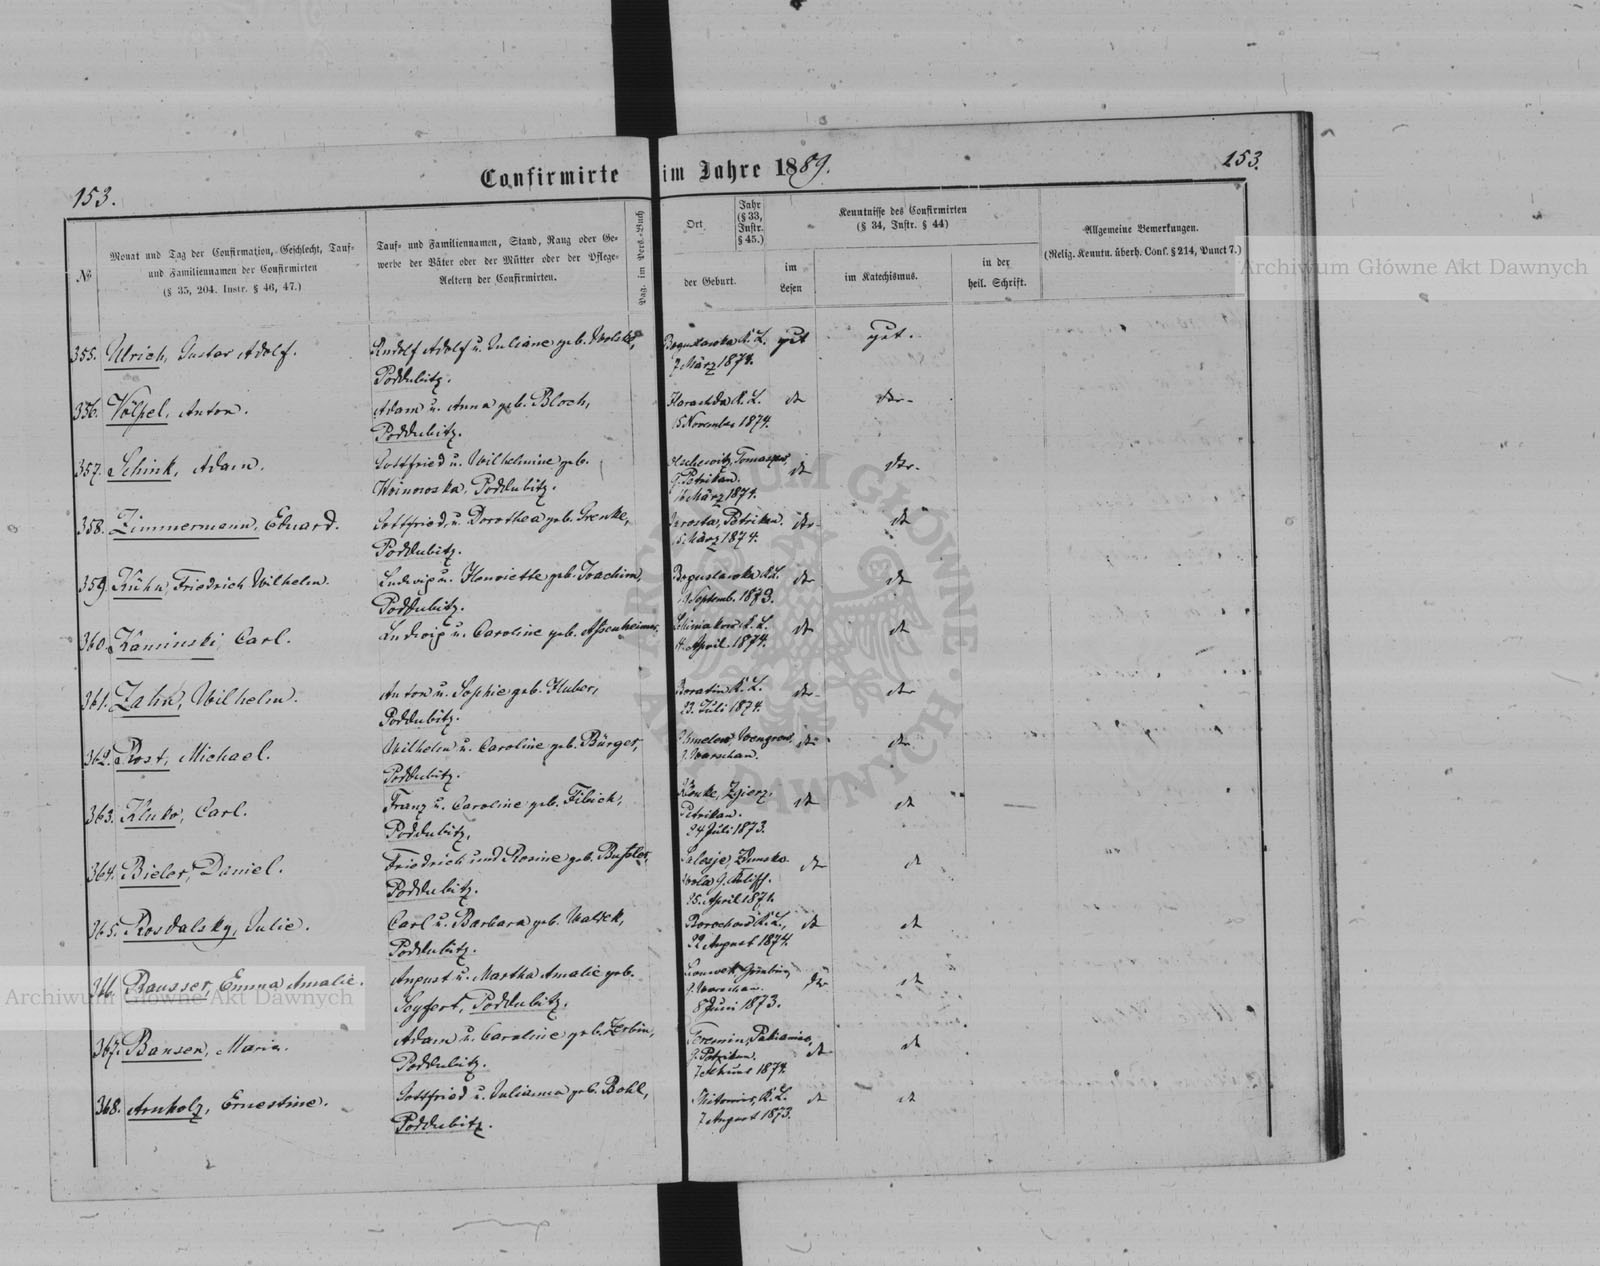 153.
Confirmirte im Jahre 1889.
153.
№
Monat und Tag der Confirmation, Geschlecht, Tauf-
und Familiennamen der Confirmirten
(§ 35, 204. Instr. § 46, 47.)
Tauf- und Familiennamen, Stand, Rang oder Ge-
werbe der Väter oder der Mütter oder der Pflege-
Aeltern der Confirmirten.
Pag. im Pers.-Buch
Ort
Jahr
(§ 33,
Instr.
§ 45.)
der Geburt.
Kenntnisse des Confirmirten
(§ 34, Instr. § 44)
im
Lesen
im Katechismus.
in der
heil. Schrift.
Allgemeine Bemerkungen.
(Relig. Kenntn. überh. Conf. § 214, Punct 7.)
355. Ulrich, Gustav Adolf.
Rudolf Adolf u. Juliane geb.
Poddubitz.
Boguslawka K. L.
7 März 1874.
gut
gut.
356. Völpel, Anton.
Adam u. Anna geb. Bloch,
Poddubitz.
K. L.
15 November 1874.
357. Schink, Adam.
Gottfried u. Wilhelmine geb.
Poddubitz.
G. Petrikau.
16 März 1874.
358. Zimmermann, Eduard.
Gottfried u. Dorothea geb. Grenke,
Poddubitz.
Petrikau.
15 März 1874.
359. Kühn, Friedrich Wilhelm.
Ludwig u. Henriette geb. Joachim,
Poddubitz.
Boguslawka K. L.
Septemb. 1873.
360. Kaminski, Carl.
Ludwig u. Caroline geb. Assenheimer,
K. L.
April 1874.
361. Zahn, Wilhelm.
Anton u. Sophie geb. Huber,
Poddubitz.
Boratin K. L.
23. Juli 1874.
362. Rost, Michael.
Wilhelm u. Caroline geb. Bürger,
Poddubitz.
Wengrow,
G. Warschau.
363. Kluko, Carl.
Franz u. Caroline geb. Fibich,
Poddubitz.
Zgierz,
Petrikau.
24 Juli 1873.
364. Bieler, Daniel.
Friedrich und Rosine geb. Bussler,
Poddubitz.
Zdunska
Wola G. Kalisch.
25. April 1871.
365. Rosdalsky, Julie.
Carl u. Barbara geb. Walzek,
Poddubitz.
Borochow K. L.,
22 August 1874.
366. Bausser, Emma Amalie.
August u. Martha Amalie geb.
Seyfert, Poddubitz.
G. Warschau.
8 Juni 1873.
367. Bansen, Maria.
Adam u. Caroline geb. Zerbin,
Poddubitz.
Teremin, Pabianice,
G. Petrikau.
1874.
368. Arnholz, Ernestine.
Gottfried u. Julianna geb. Bohl,
Poddubitz.
K. L.
7 August 1873.
Archiwum Główne Akt Dawnych
Archiwum Główne Akt Dawnych
ARCHIWUM GŁÓWNE AKT DAWNYCH